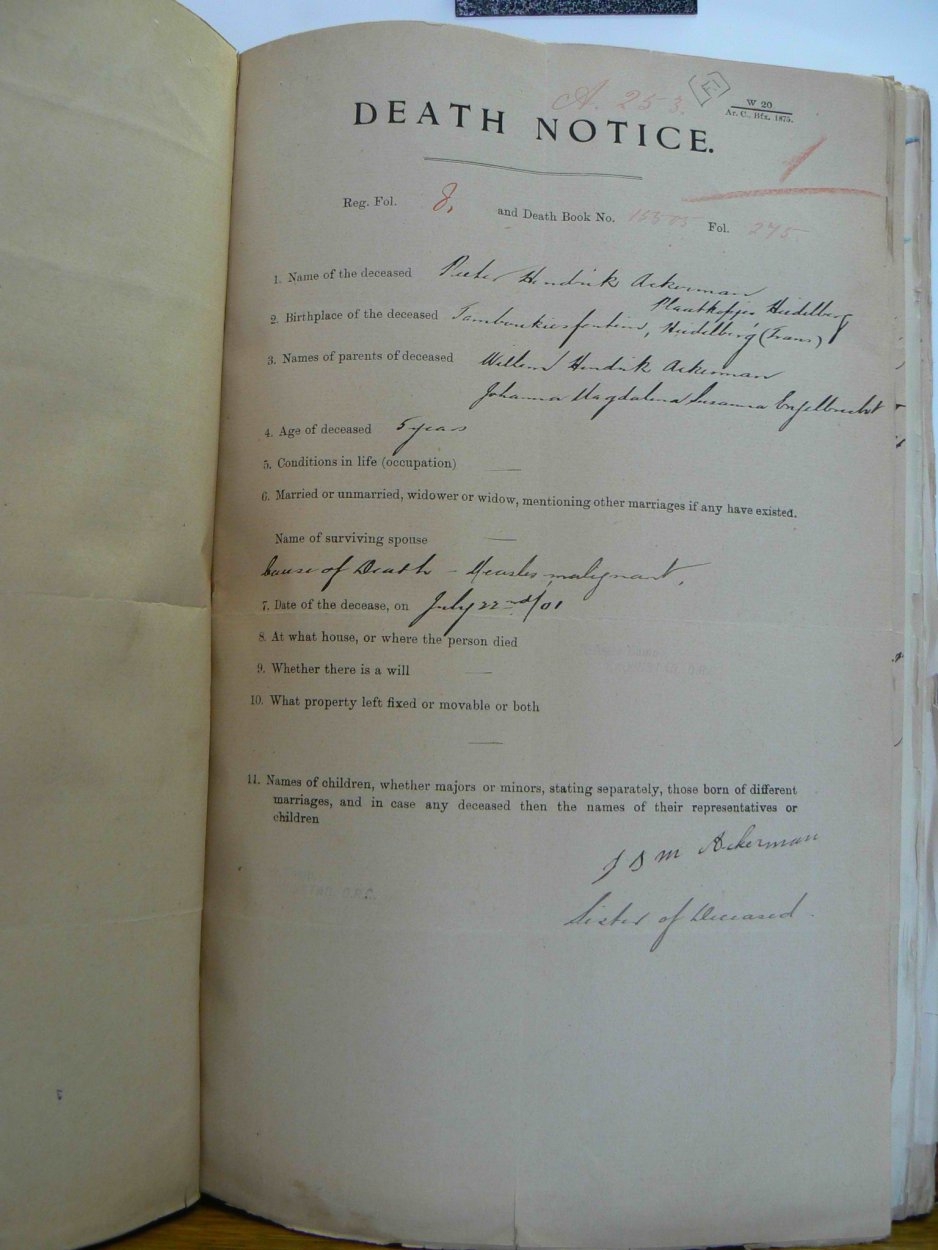 A. 253
(F.1)
W 20
Ar. C., Bfx. 1875.
DEATH NOTICE.
1
Reg. Fol. J. and Death Book No. Fol. 275
1. Name of the deceased Pieter Hendrik Ackerman
Plaatkopjes Heidelberg
2. Birthplace of the deceased Tamboukiesfontein, Heidelberg (Trans)
3. Names of parents of deceased Willem Hendrik Ackerman
Johanna Magdalena Susanna Engelbrecht
4. Age of deceased 5 years
5. Conditions in life (occupation) —
6. Married or unmarried, widower or widow, mentioning other marriages if any have existed.
Name of surviving spouse —
Cause of Death – Measles malignant.
7. Date of the decease, on July 22nd/01
8. At what house, or where the person died
9. Whether there is a will —
10. What property left fixed or movable or both
—
11. Names of children, whether majors or minors, stating separately, those born of different
marriages, and in case any deceased then the names of their representatives or
children
J S M Ackerman
Sister of Deceased